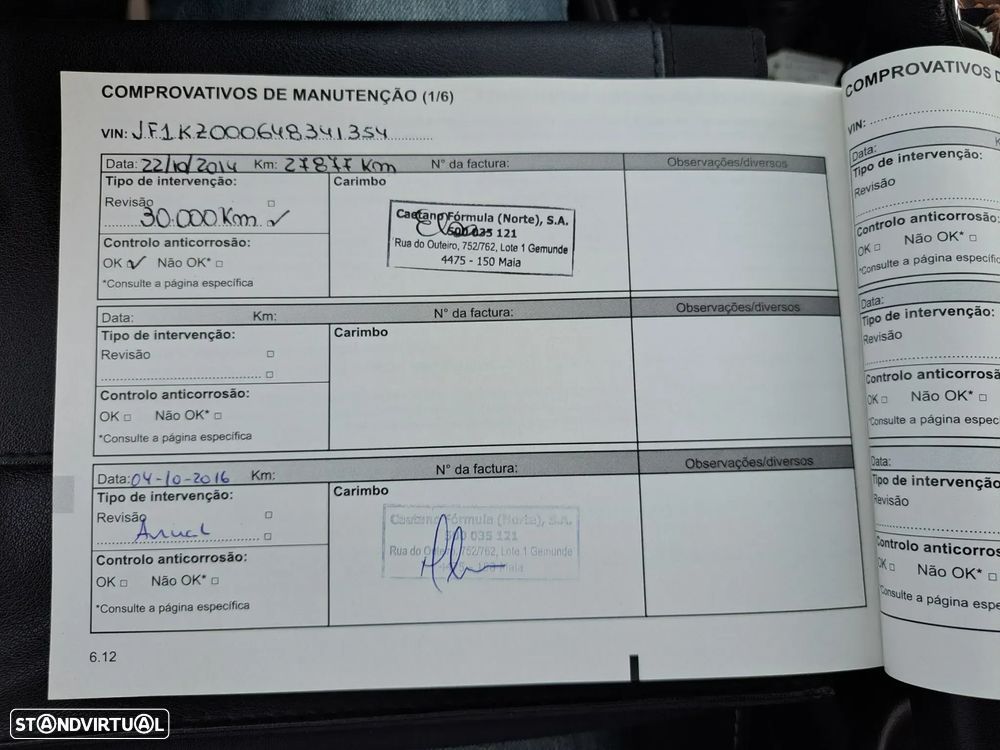 COMPROVATIVOS DE MANUTENÇÃO (1/6)
VIN: JF1KZ000648341354
Data: 22/10/2014 Km: 27877 Km N° da factura: Observações/diversos
Tipo de intervenção: Carimbo
Revisão
30.000 Km ✓
Controlo anticorrosão:
OK ✓ Não OK*
*Consulte a página específica
Caetano Fórmula (Norte), S.A.
500 035 121
Rua do Outeiro, 752/762, Lote 1 Gemunde
4475 - 150 Maia
Data: Km: N° da factura: Observações/diversos
Tipo de intervenção: Carimbo
Revisão
Controlo anticorrosão:
OK Não OK*
*Consulte a página específica
Data: 04-10-2016 Km: N° da factura: Observações/diversos
Tipo de intervenção: Carimbo
Revisão
Anual
Controlo anticorrosão:
OK Não OK*
*Consulte a página específica
Caetano Fórmula (Norte), S.A.
500 035 121
Rua do Outeiro, 752/762, Lote 1 Gemunde
4475 - 150 Maia
6.12
COMPROVATIVOS D
VIN:
Data:
Tipo de intervenção:
Revisão
Controlo anticorrosão:
OK Não OK*
*Consulte a página específic
Data:
Tipo de intervenção:
Revisão
Controlo anticorrosã
OK Não OK*
*Consulte a página especí
Data:
Tipo de intervenção
Revisão
Controlo anticorros
OK Não OK*
*Consulte a página espe
STANDVIRTUAL